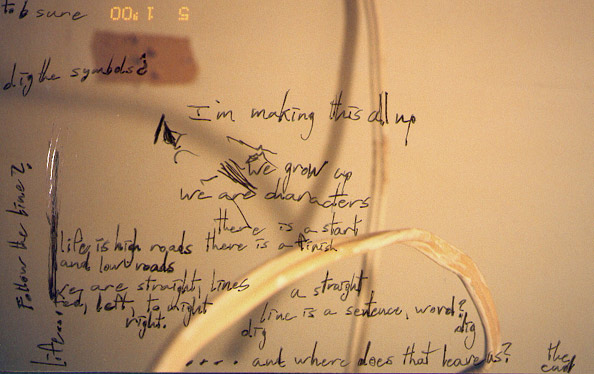 to b sure
dig the symbols?
I'm making this all up
we grow up
we are characters
there is a start
there is a finish
life is high roads
and low roads
we are straight, lines
left, to
right.
a straight
line is a sentence, word?
dig
dig
.... and where does that leave us?
the
end
Follow the line?
life....